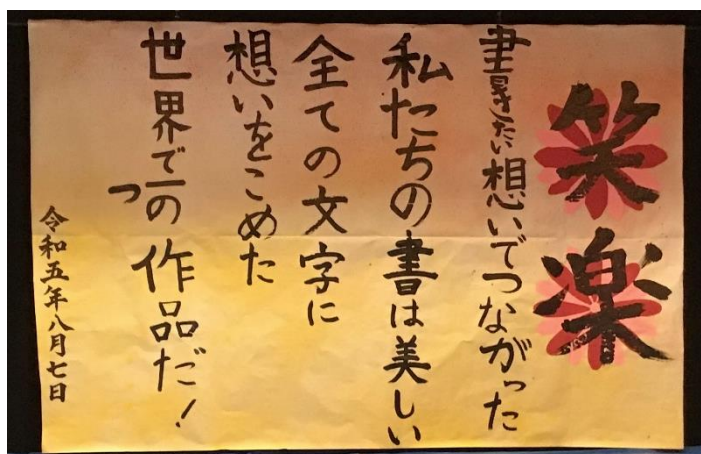 笑楽
書きたい想いでつながった
私たちの書は美しい
全ての文字に
想いをこめた
世界で一つの作品だ！
令和五年八月七日